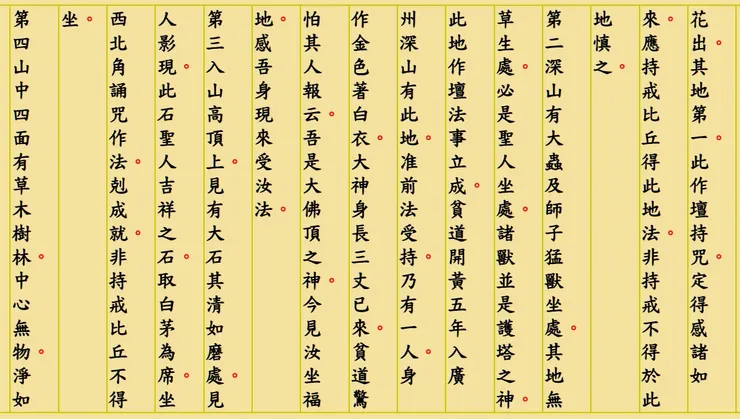 花出。其地第一。此作壇持咒。定得感諸如
來。應持戒比丘得此地法。非持戒不得於此
地慎之。
第二深山有大蟲及師子猛獸坐處。其地無
草生處。必是聖人坐處。諸獸並是護塔之神。
此地作壇法事立成。貧道開黃五年入廣
州深山有此地。准前法受持。乃有一人。身
作金色著白衣。大神身長三丈已來。貧道驚
怕其人報云。吾是大佛頂之神。今見汝坐福
地。感吾身現來受汝法。
第三入山高頂上。見有大石其清如磨處。見
人影現。此石聖人吉祥之石。取白茅為席。坐
西北角誦咒作法。剋成就。非持戒比丘不得
坐。
第四山中四面有草木樹林。中心無物。淨如